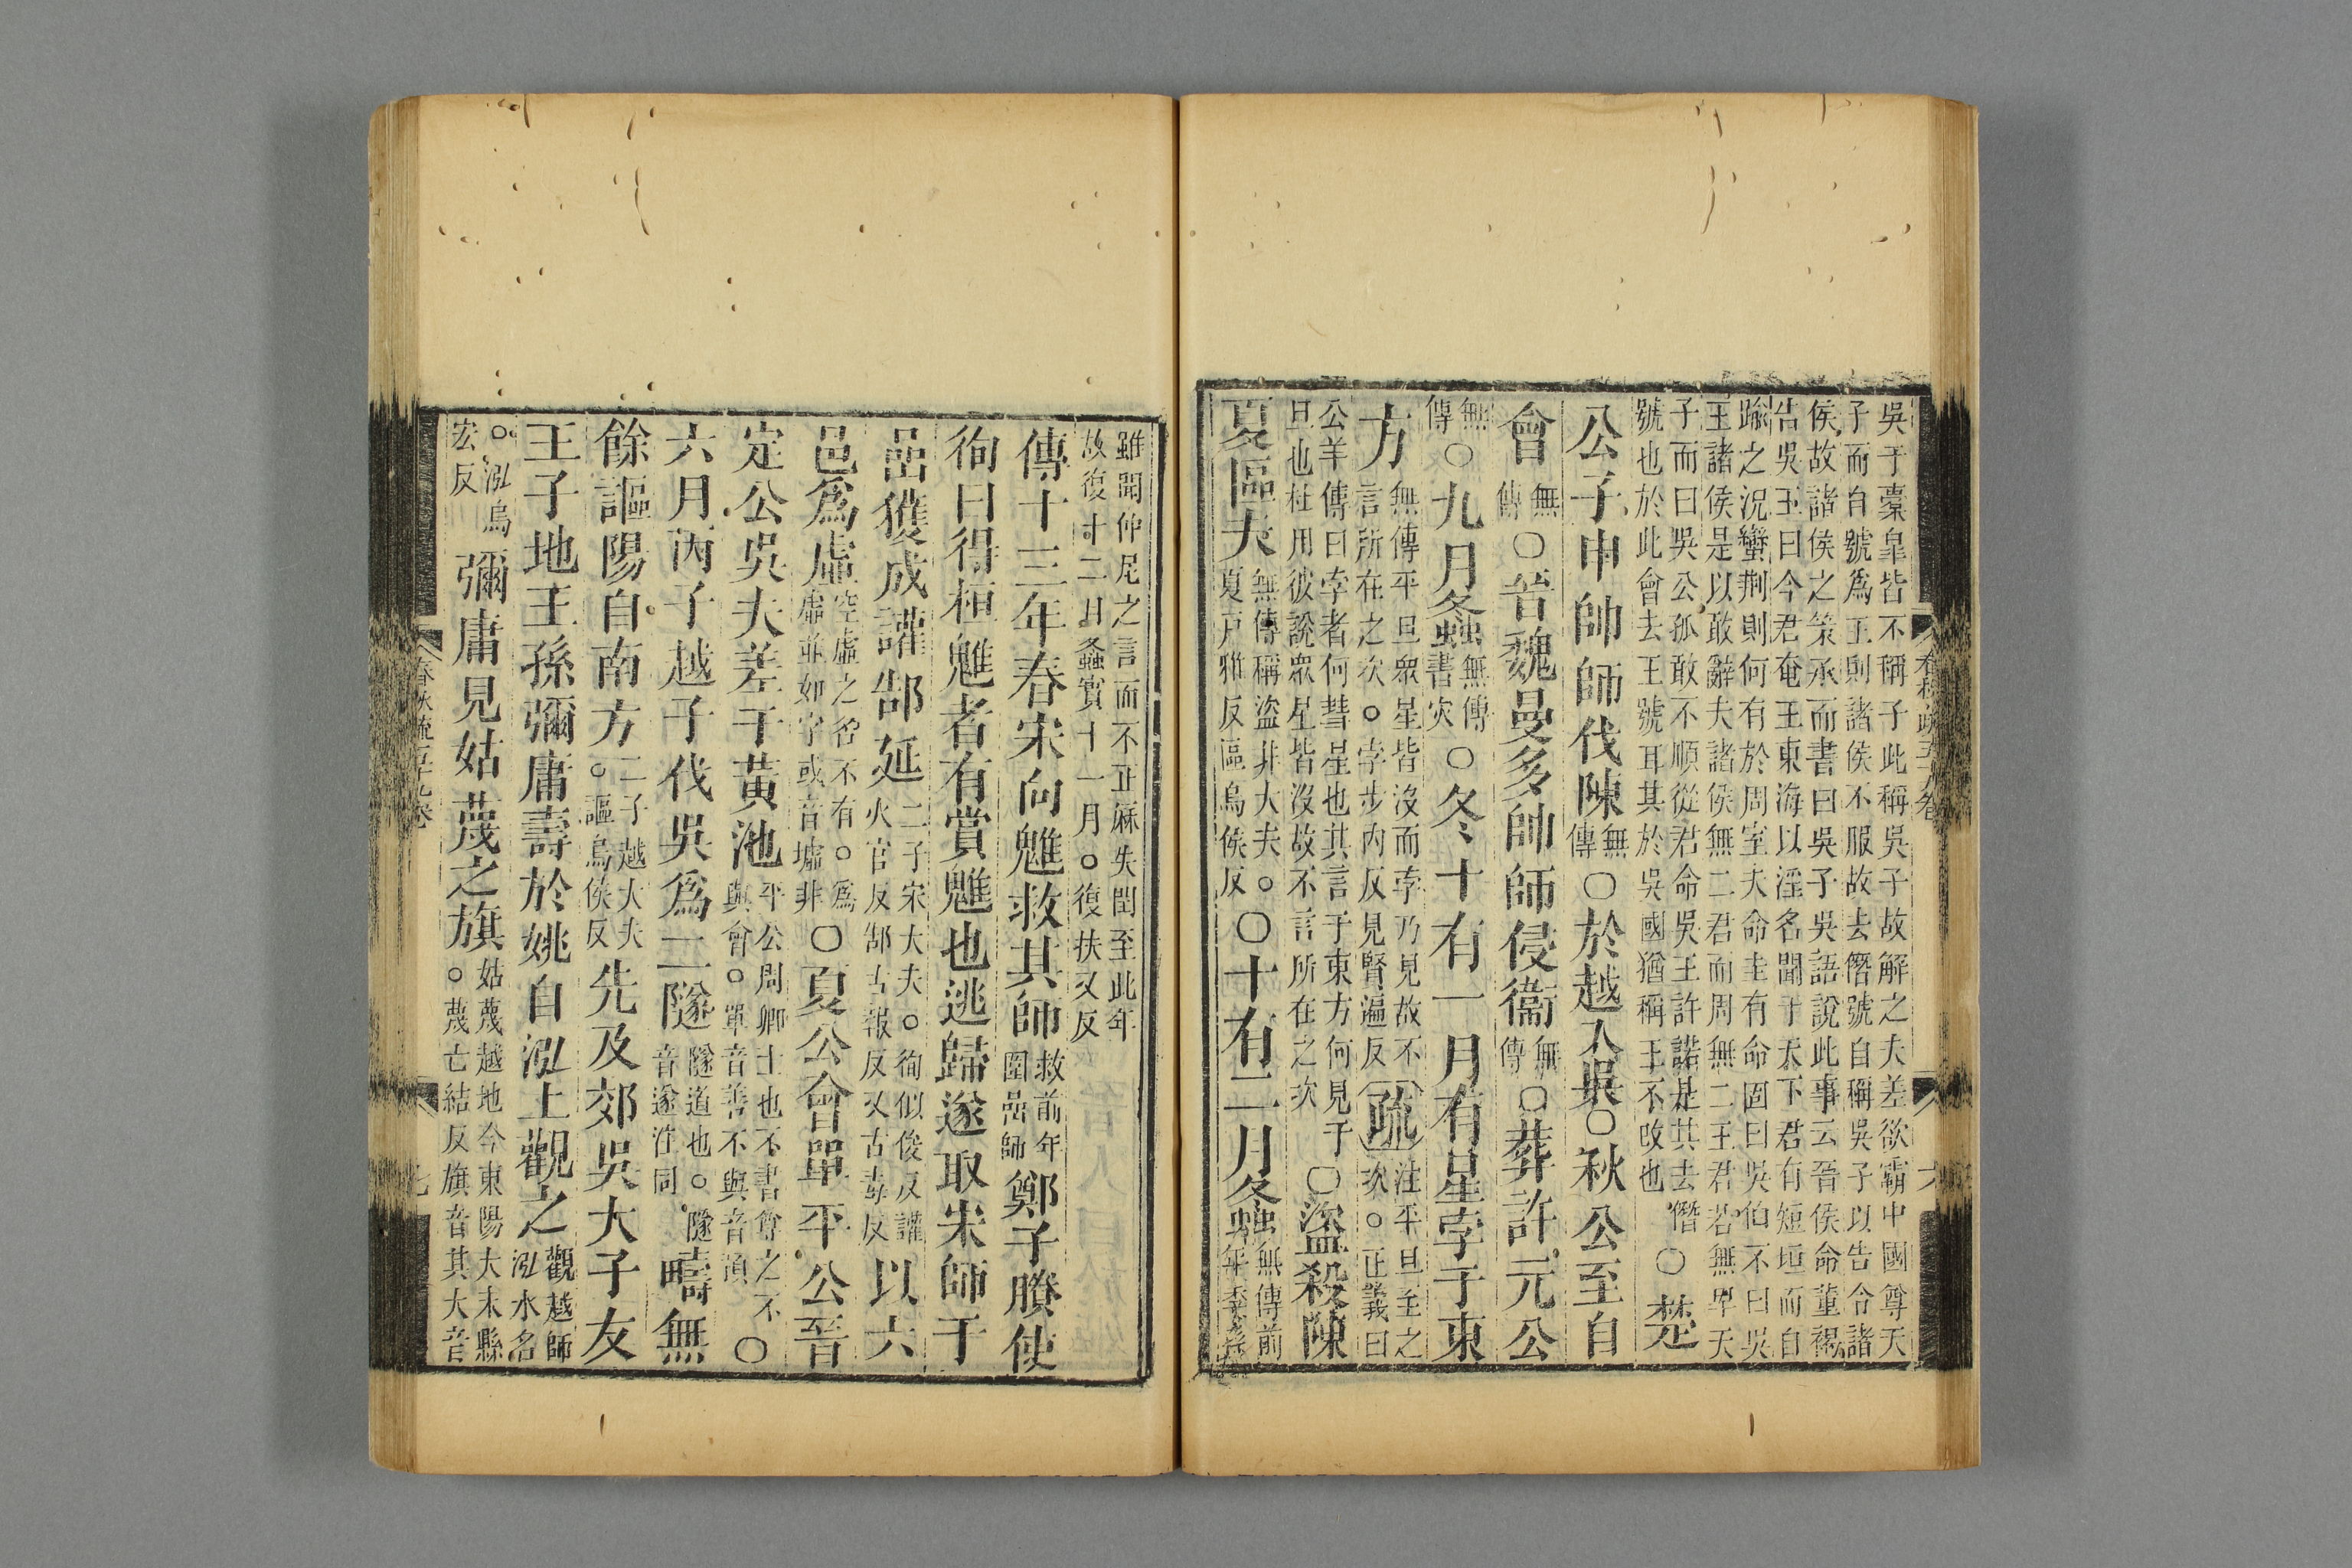 吳于橐皐皆不稱子此稱吳子故解之夫差欲霸中國尊天
子而自號爲王則諸侯不服故去僭號自稱吳子以告令諸
侯故諸侯之策承而書曰吳子吳語說此事云晉侯命董褐
告吳王曰今君奄王東海以淫名聞于天下君有短垣而自
踰之況蠻荆則何有於周室夫命圭有命固曰吳伯不曰吳
王諸侯是以敢辭夫諸侯無二君而周無二王君若無卑天
子而曰吳公孤敢不順從君命吳王許諾是其去僭
號也於此會去王號耳其於吳國猶稱王不改也○楚
公子申帥師伐陳無傳○於越入吳○秋公至自
會無傳○晉魏曼多帥師侵衞無傳○葬許元公
無傳○九月螽無傳書灾○冬十有一月有星孛于東
方無傳平旦衆星皆沒而孛乃見故不言所在之次○孛步內反見賢遍反疏注平旦至之次○正義曰
公羊傳曰孛者何彗星也其言于東方何見于旦也杜用彼說衆星皆沒故不言所在之次○盜殺陳
夏區夫無傳稱盜非大夫○夏戶雅反區烏侯反○十有二月螽無傳前年季孫
雖聞仲尼之言而不正厤失閏至此年
故復十二月螽實十一月○復扶又反
傳十三年春宋向魋救其師救前年圍嵒師鄭子賸使
徇曰得桓魋者有賞魋也逃歸遂取宋師于
嵒獲成讙郜延二子宋大夫○徇似俊反讙火官反郜古報反又古毒反以六
邑爲虛空虛之各不有○爲虛並如字或音墟非○夏公會單平公晉
定公吳夫差于黃池平公周卿士也不書尊之不與會○單音善不與音預○
六月丙子越子伐吳爲二隧隧道也○隧音遂注同疇無
餘謳陽自南方二子越大夫○謳烏侯反先及郊吳大子友
王子地王孫彌庸壽於姚自泓上觀之觀越師泓水名
○泓烏宏反彌庸見姑蔑之旗姑蔑越地今東陽大末縣○蔑亡結反旗音其大音
春秋疏五十九卷
六
春秋疏五十九卷
七